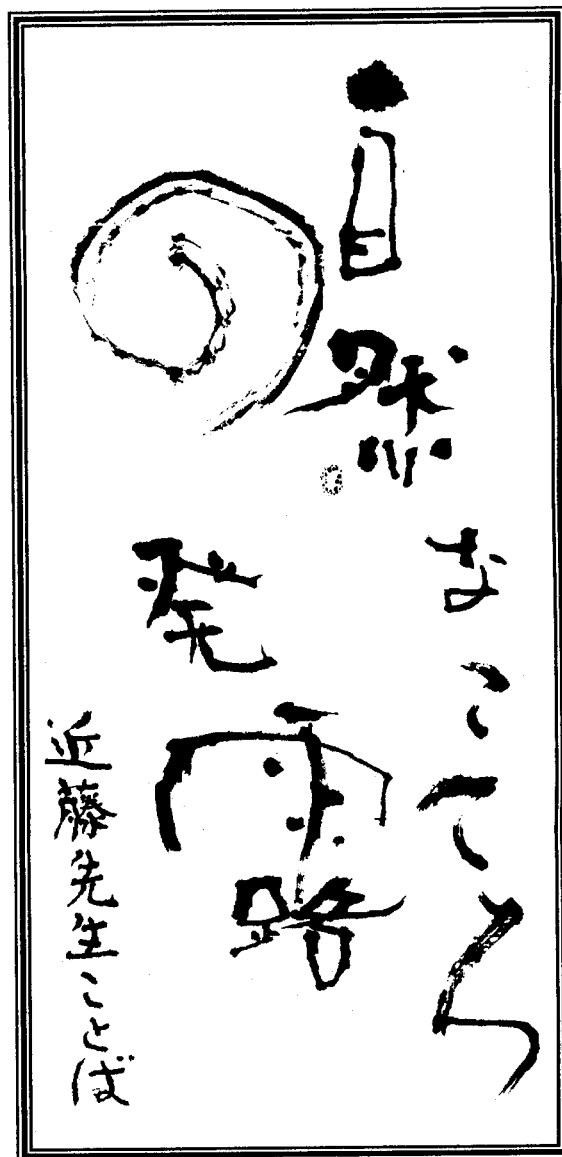 自然
なこころ
の
発露
近藤先生ことば